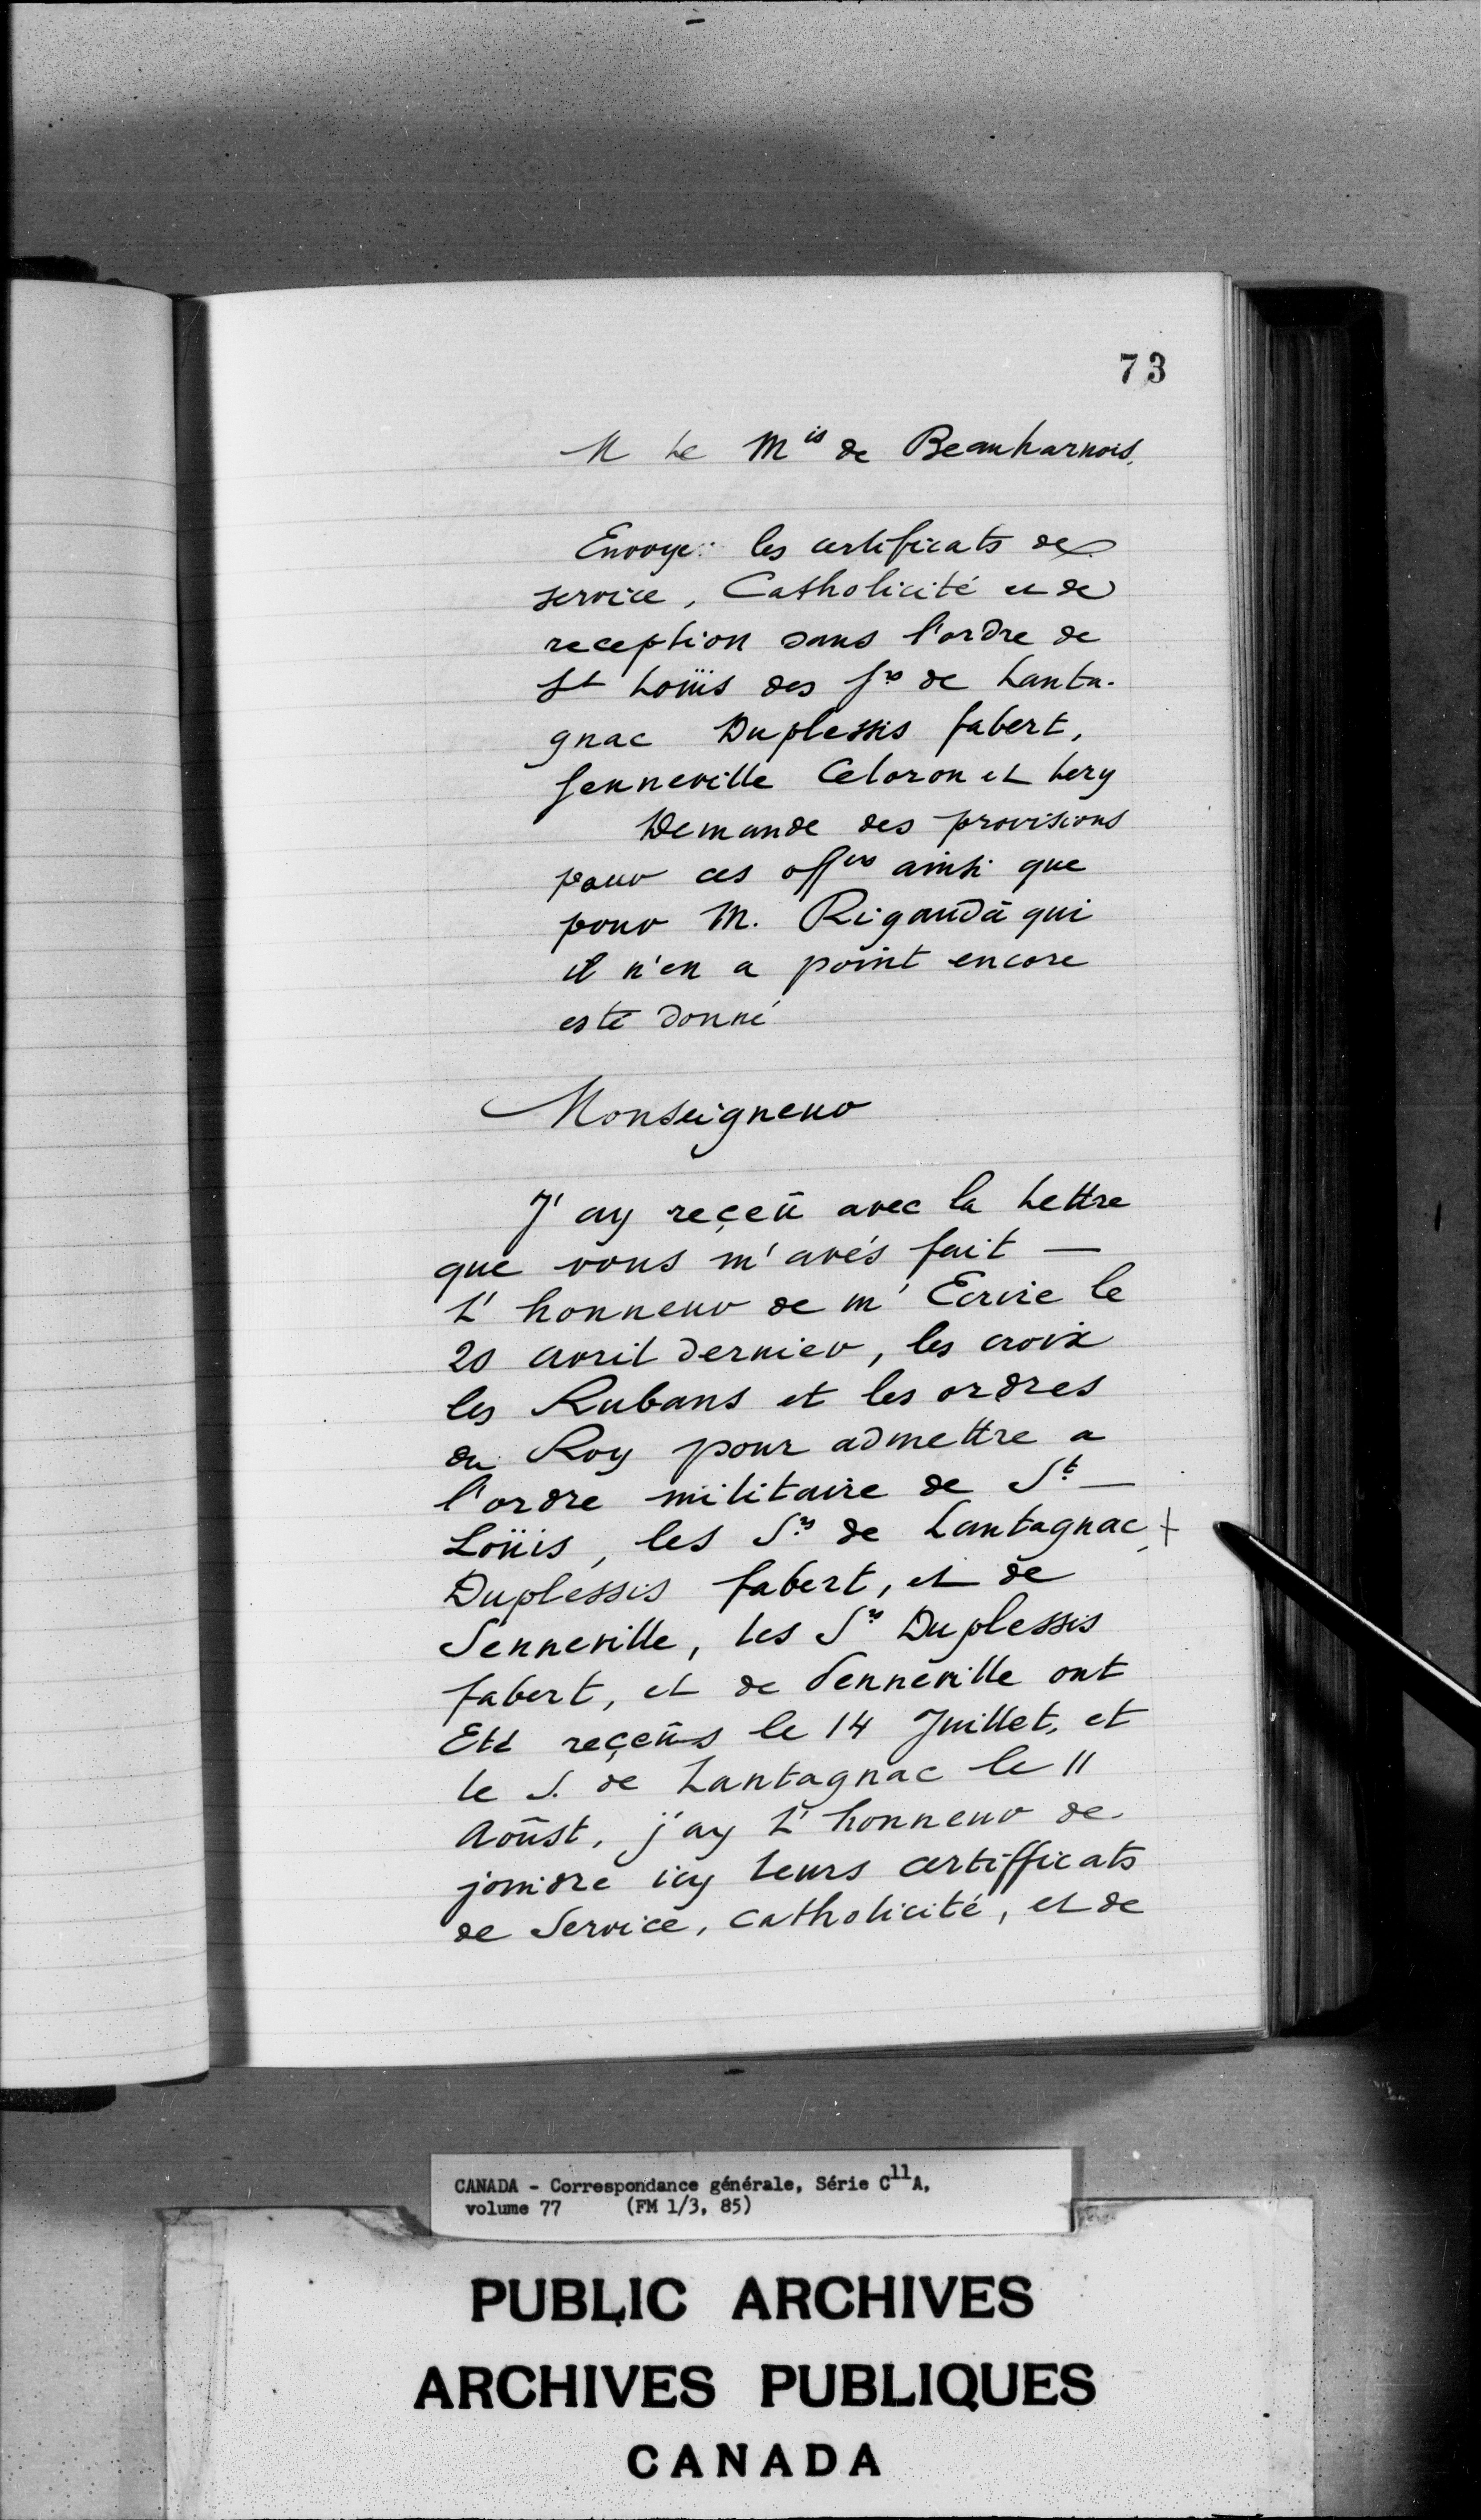 73
M Le Mis de Beauharnois.
Envoye les certificats de
service, Catholicité et de
reception dans l'ordre de
St Loüis des Srs de Lanta-
gnac Duplessis fabert,
Senneville Celoron et Lery
Demande des provisions
pour ces offers ainsi que
pour M. Rigaud à qui
il n'en a point encore
esté donné
Monseigneur
J'ay reçeü avec la Lettre
que vous m'avés fait —
L'honneur de m'Ecrire le
20 avril dernier, les croix
les Rubans et les ordres
du Roy pour admettre a
l'ordre militaire de St —
Loüis, les Srs de Lantagnac, +
Duplessis fabert, et de
Senneville, les Srs Duplessis
fabert, et de Senneville ont
Eté reçeüs le 14 Juillet, et
le S. de Lantagnac le 11
Aoûst, j'ay L'honneur de
joindre icy leurs certifficats
de Service, Catholicité, et de
CANADA - Correspondance générale, Série C11A,
volume 77 (FM 1/3, 85)
PUBLIC ARCHIVES
ARCHIVES PUBLIQUES
CANADA